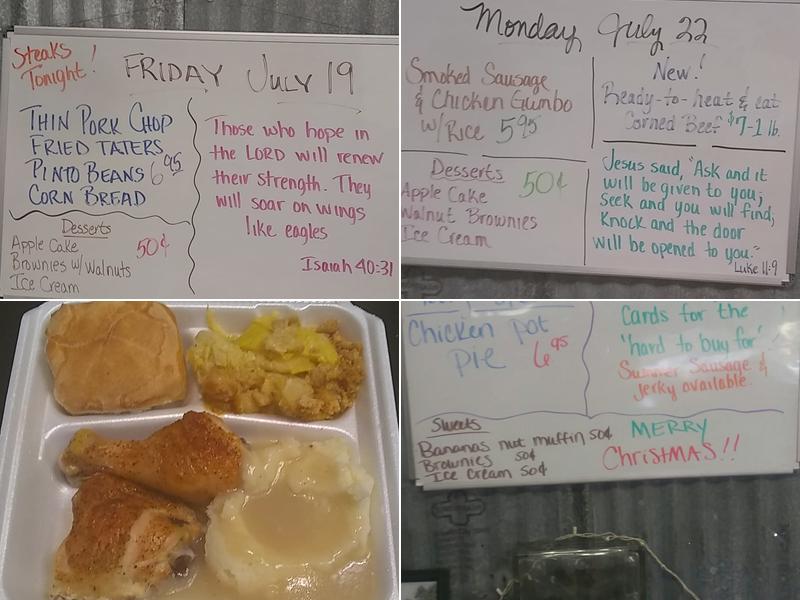 Steaks
Tonight!
FRIDAY JULY 19
THIN PORK CHOP
FRIED TATERS
PINTO BEANS 6 95
CORN BREAD
Desserts
Apple Cake 50¢
Brownies w/Walnuts
Ice Cream
Those who hope in
the LORD will renew
their strength. They
will soar on wings
like eagles
Isaiah 40:31
Monday July 22
Smoked Sausage
& Chicken Gumbo
w/Rice 5 95
Desserts 50¢
Apple Cake
Walnut Brownies
Ice Cream
New!
Ready-to-heat & eat
Corned Beef $7-1 lb.
Jesus said, "Ask and it
will be given to you;
seek and you will find;
Knock and the door
will be opened to you."
Luke 11:9
Chicken pot
pie 6 95
Cards for the
'hard to buy for'
Summer Sausage &
jerky available.
Sweets
Bananas nut muffin 50¢
Brownies 50¢
Ice Cream 50¢
MERRY
CHRISTMAS!!